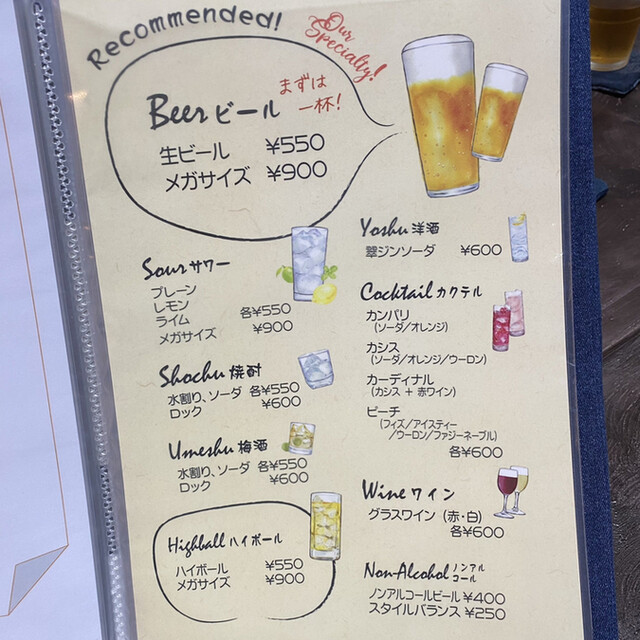 Recommended!
Our
Specialty!
Beer ビール
まずは
一杯!
生ビール ¥550
メガサイズ ¥900
Sour サワー
プレーン
レモン
ライム 各¥550
メガサイズ ¥900
Shochu 焼酎
水割り、ソーダ 各¥550
ロック ¥600
Umeshu 梅酒
水割り、ソーダ 各¥550
ロック ¥600
Highball ハイボール
ハイボール ¥550
メガサイズ ¥900
Yoshu 洋酒
翠ジンソーダ ¥600
Cocktail カクテル
カンパリ
(ソーダ/オレンジ)
カシス
(ソーダ/オレンジ/ウーロン)
カーディナル
(カシス + 赤ワイン)
ピーチ
(フィズ/アイスティー
/ウーロン/ファジーネーブル)
各¥600
Wine ワイン
グラスワイン (赤・白)
各¥600
Non-Alcohol ノンアル
コール
ノンアルコールビール ¥400
スタイルバランス ¥250